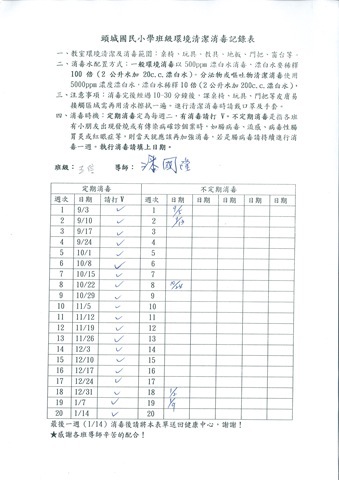 頭城國民小學班級環境清潔消毒記錄表
一、教室環境清潔及消毒範圍：桌椅、玩具、教具、地板、門把、窗台等。
二、消毒水配置方式：一般環境消毒以 500ppm 漂白水消毒，漂白水要稀釋
100 倍（2 公升水加 20c.c.漂白水）。分泌物或嘔吐物清潔消毒使用
5000ppm 濃度漂白水，漂白水稀釋 10 倍（2 公升水加 200c.c.漂白水）。
三、注意事項：消毒完後經過 10-30 分鐘後，課桌椅、玩具、門把等皮膚易
接觸區域需再用清水擦拭一遍。進行清潔消毒時請戴口罩及手套。
四、消毒時機：定期消毒定為每週二，有消毒請打 V。不定期消毒是指各班
有小朋友出現發燒或有傳染病確診個案時，如腸病毒、流感、病毒性腸
胃炎或紅眼症等，則當天就應該再加強消毒，若是腸病毒請持續進行消
毒一週。執行消毒請填上日期。
班級： 導師：
定期消毒 不定期消毒
週次 日期 請打 V 週次 日期 日期 日期 日期 日期
1 9/3 ✓ 1
2 9/10 ✓ 2
3 9/17 ✓ 3
4 9/24 ✓ 4
5 10/1 ✓ 5
6 10/8 ✓ 6
7 10/15 ✓ 7
8 10/22 ✓ 8
9 10/29 ✓ 9
10 11/5 ✓ 10
11 11/12 ✓ 11
12 11/19 ✓ 12
13 11/26 ✓ 13
14 12/3 ✓ 14
15 12/10 ✓ 15
16 12/17 ✓ 16
17 12/24 ✓ 17
18 12/31 ✓ 18
19 1/7 ✓ 19
20 1/14 ✓ 20
最後一週（1/14）消毒後請將本表單送回健康中心，謝謝！
★感謝各班導師辛苦的配合！